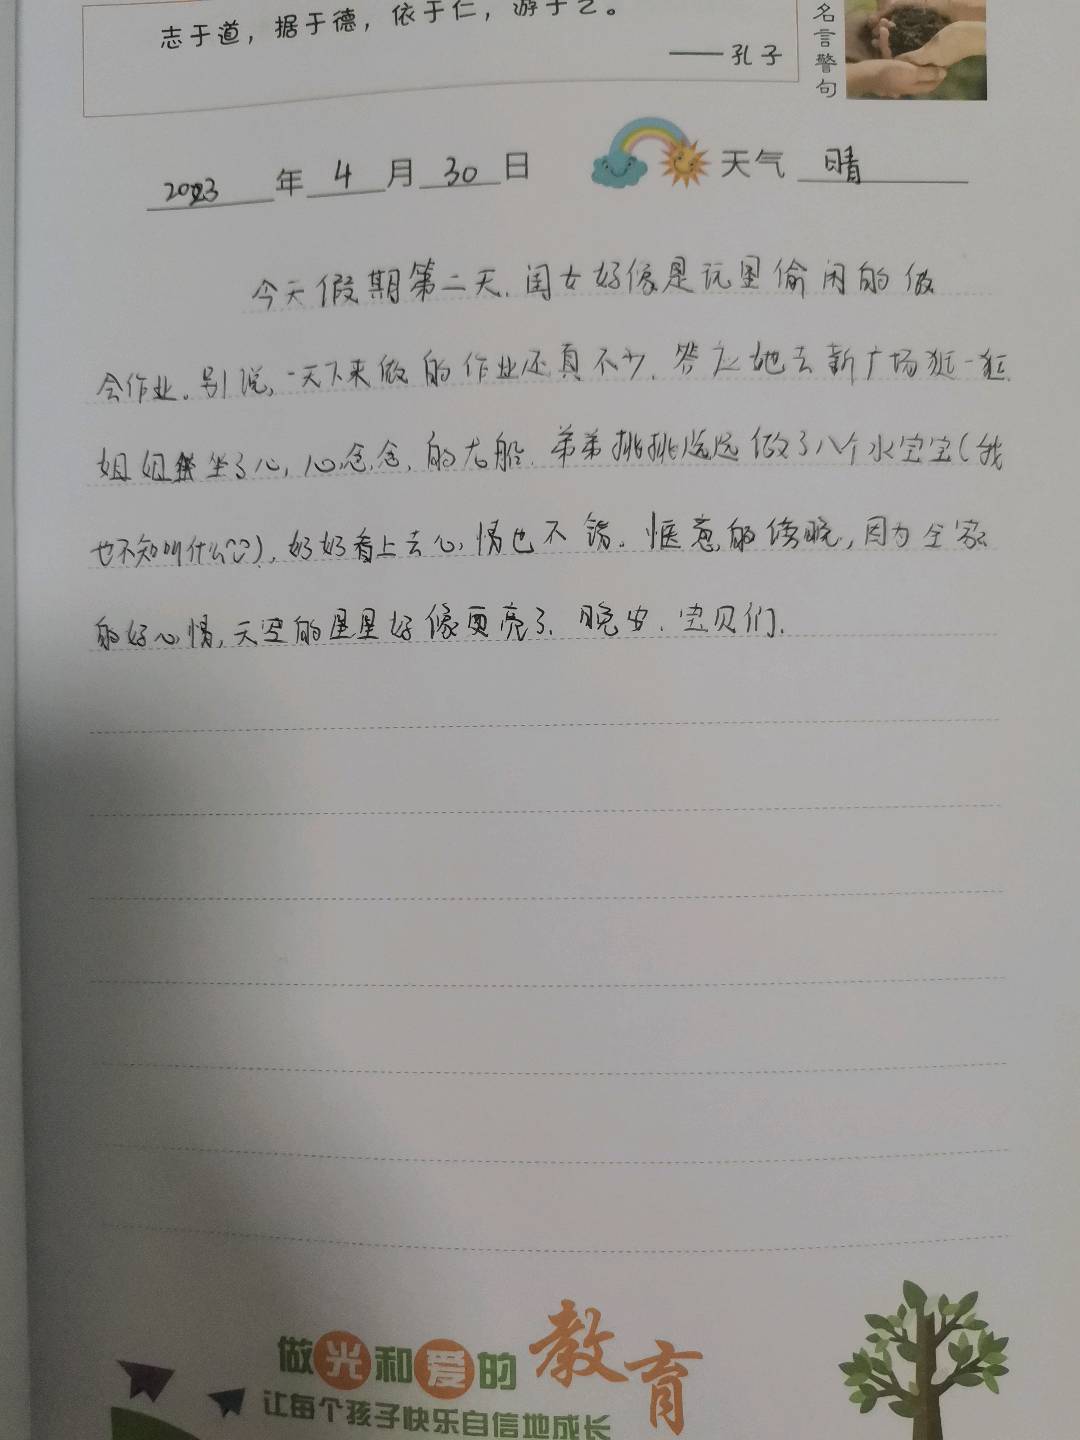 志于道，据于德，依于仁，游于艺。
——孔子
名言警句
2023年4月30日 天气 晴
今天假期第二天.闺女好像是玩里偷闲的做
会作业。别说,一天下来做的作业还真不少.答应她去新广场逛一逛.
姐姐坐了心,心念念,的龙船.弟弟挑挑选选做了八个水宝宝(我
也不知叫什么),好好看上去心情也不错。惬意的傍晚,因为全家
的好心情,天空的星星好像更亮了.晚安.宝贝们.
做光和爱的教育
让每个孩子快乐自信地成长